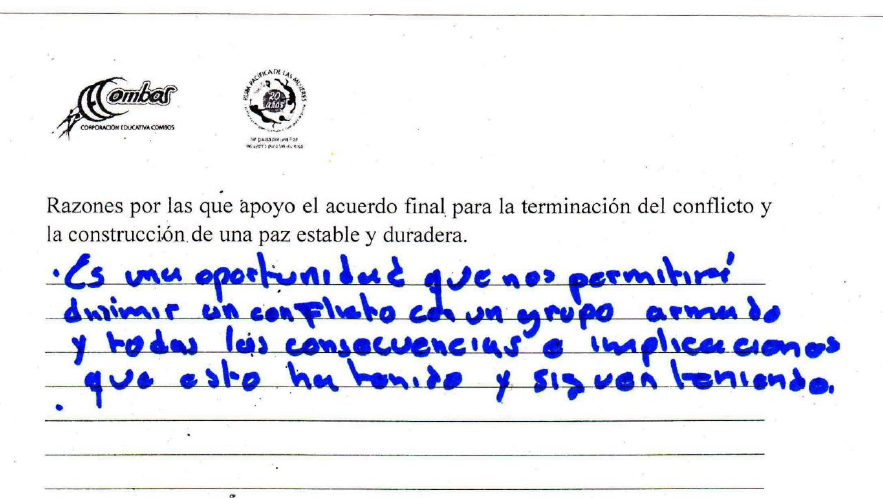 Combos
CORPORACIÓN EDUCATIVA COMBOS
RUTA PACÍFICA DE LAS MUJERES
20 años
Razones por las que apoyo el acuerdo final para la terminación del conflicto y
la construcción de una paz estable y duradera.
· Es una oportunidad que nos permitirá
dirimir un conflicto con un grupo armado
y todas las consecuencias e implicaciones
que esto ha tenido y siguen teniendo.
·